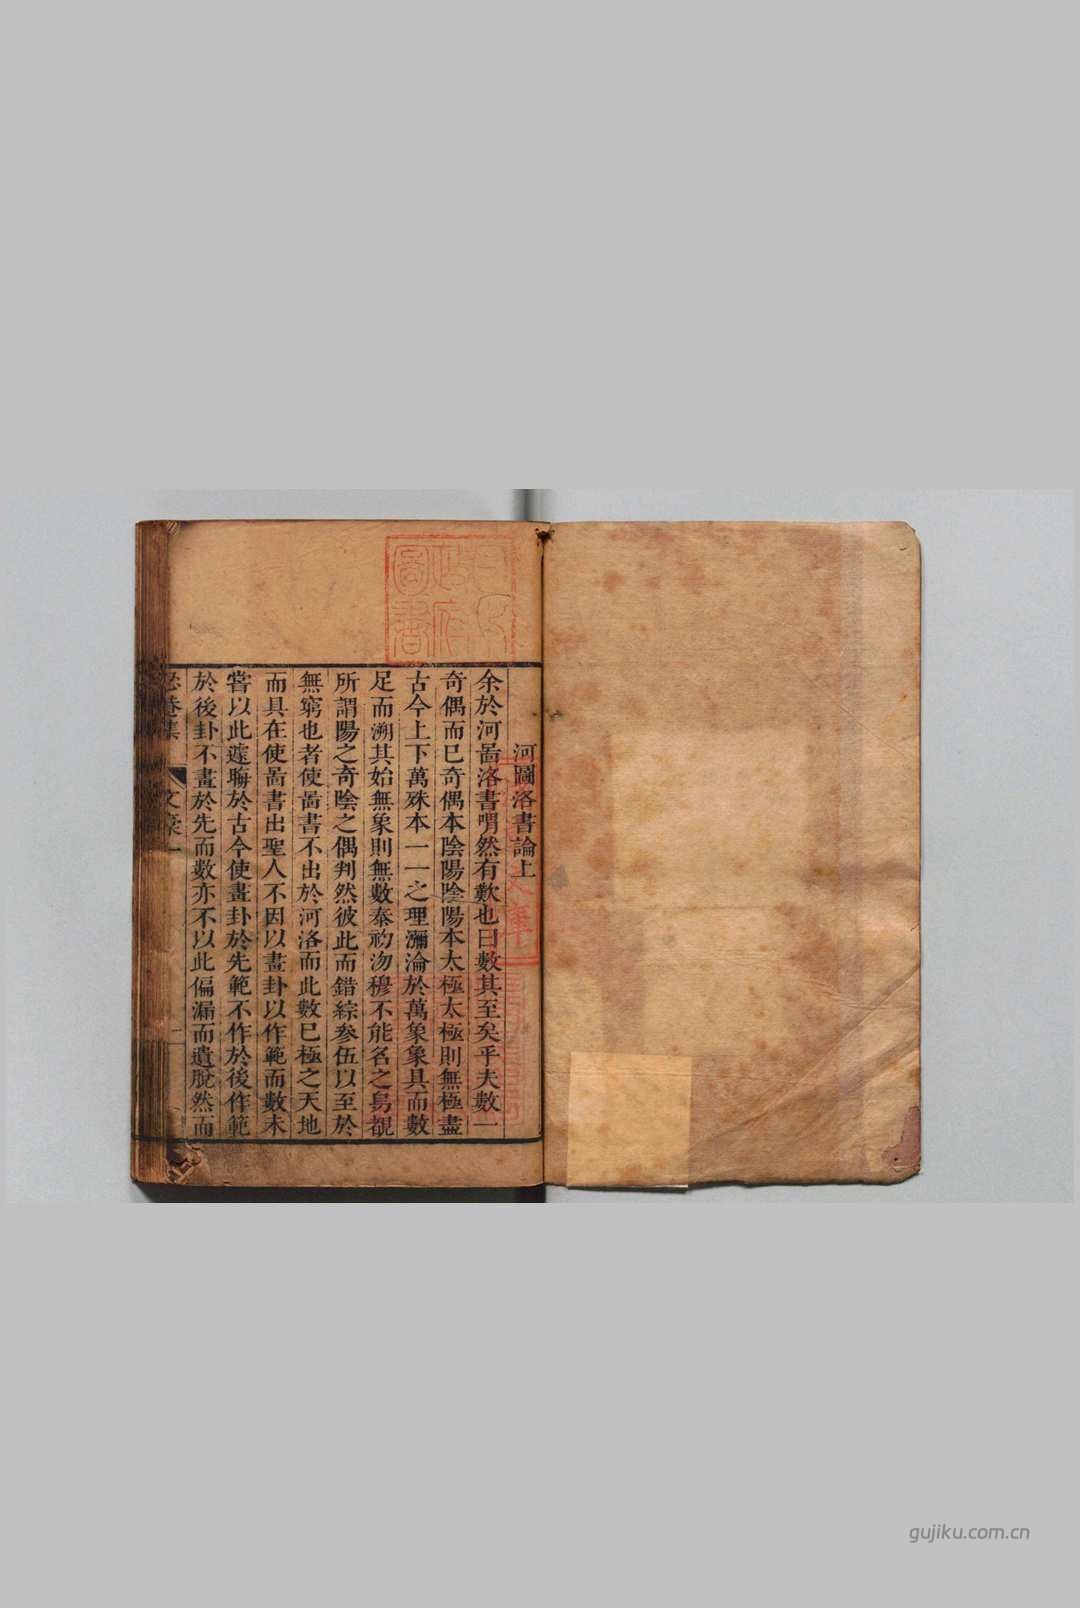 河圖洛書論上
余於河啚洛書喟然有歎也曰數其至矣乎夫數一
奇偶而已奇偶本陰陽陰陽本太極太極則無極盡
古今上下萬殊本一一之理瀰淪於萬象象具而數
足而溯其始無象則無數泰礿沕穆不能名之舄覩
所謂陽之奇陰之偶判然彼此而錯綜參伍以至於
無窮也者使啚書不出於河洛而此數已極之天地
而具在使啚書出聖人不因以畫卦以作範而數未
嘗以此遽聮於古今使畫卦於先範不作於後作範
於後卦不畫於先而數亦不以此偏漏而遺脫然而
菴集 文稾一
圖書
gujiku.com.cn